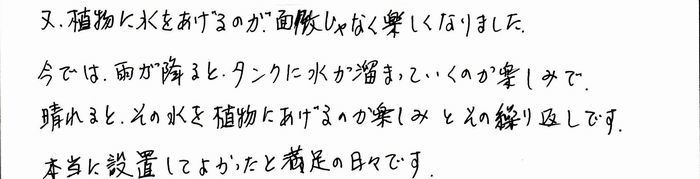 又、植物に水をあげるのが、面倒じゃなく楽しくなりました。
今では、雨が降ると、タンクに水が溜まっていくのが楽しみで、
晴れると、その水を植物にあげるのが楽しみとその繰り返しです。
本当に設置してよかったと満足の日々です。